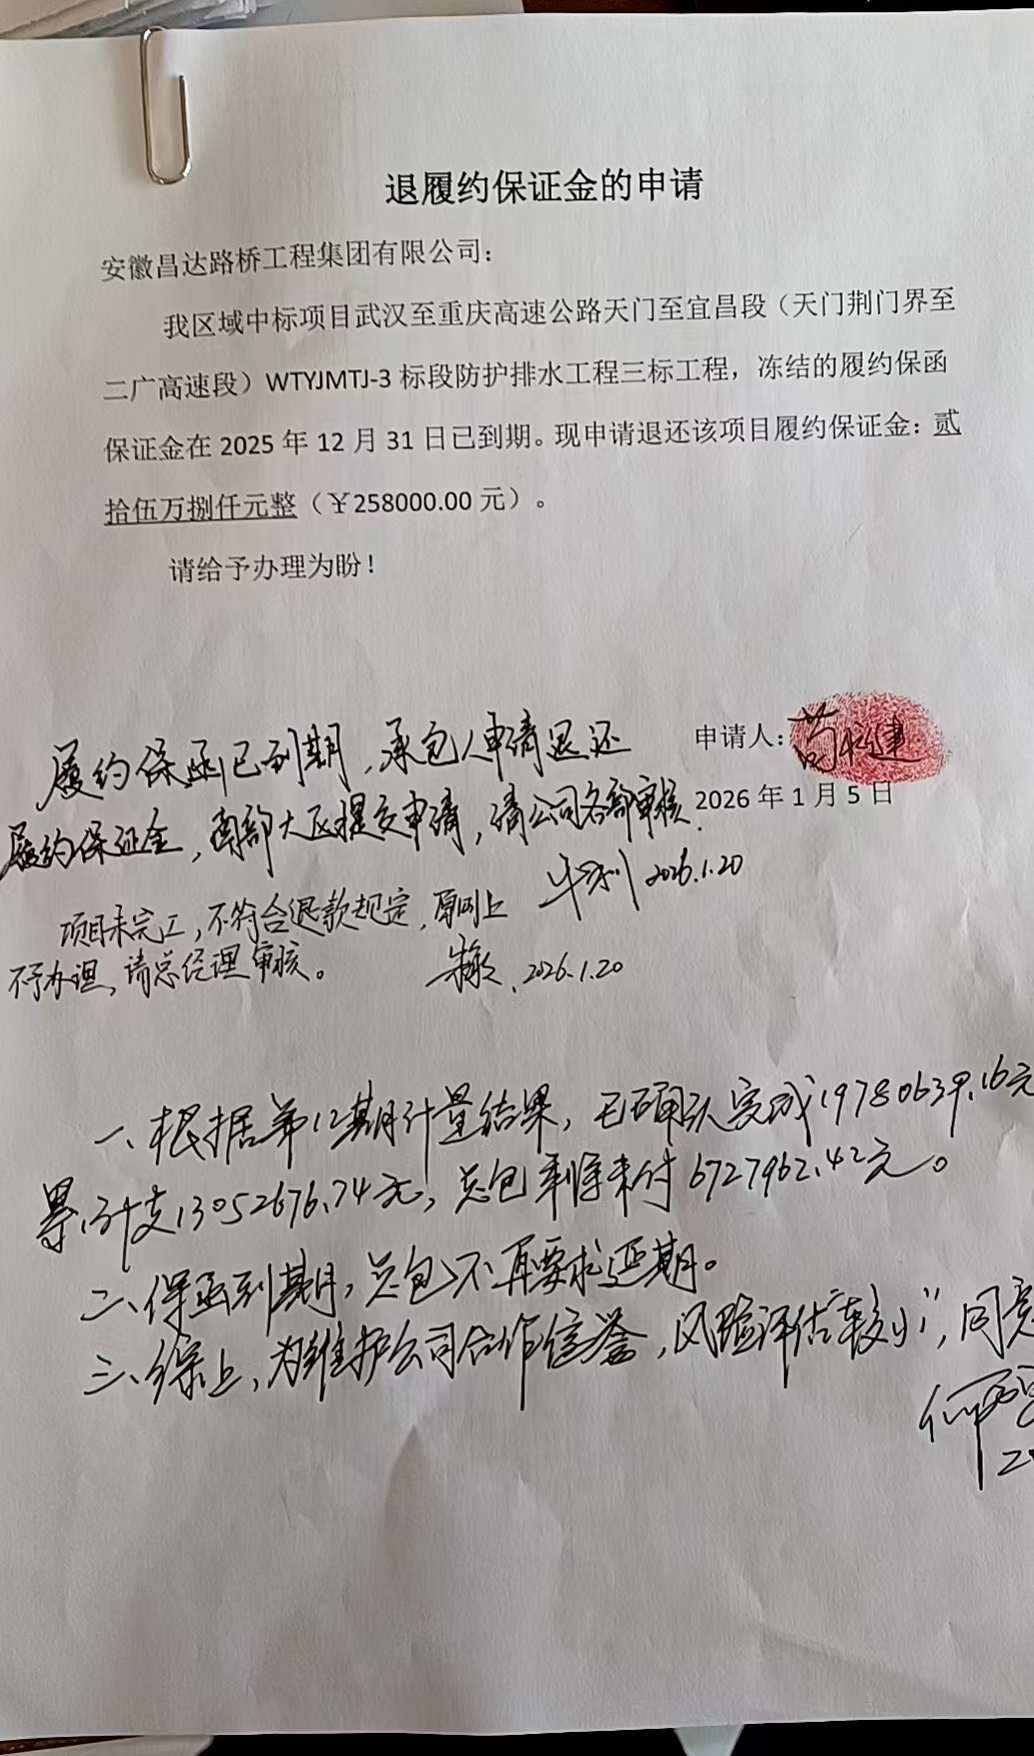 退履约保证金的申请
安徽昌达路桥工程集团有限公司：
我区域中标项目武汉至重庆高速公路天门至宜昌段（天门荆门界至
二广高速段）WTYJMTJ-3 标段防护排水工程三标工程，冻结的履约保函
保证金在 2025 年 12 月 31 日已到期。现申请退还该项目履约保证金：贰
拾伍万捌仟元整（￥258000.00 元）。
请给予办理为盼！
申请人：
2026 年 1 月 5 日
履约保函已到期，承包人申请退还
履约保证金，南部大区提交申请，请公司各部审核.
2026.1.20
项目未完工，不符合退款规定，原则上
不予办理，请总经理审核。
2026.1.20
一、根据第12期计量结果，已确认完成19780639.16元
累计支13052676.74元，总包剩余未付6727962.42元。
二、保函到期，总包不再要求延期。
三、综上，为维护公司合作信誉，风险评估“较小”，同意